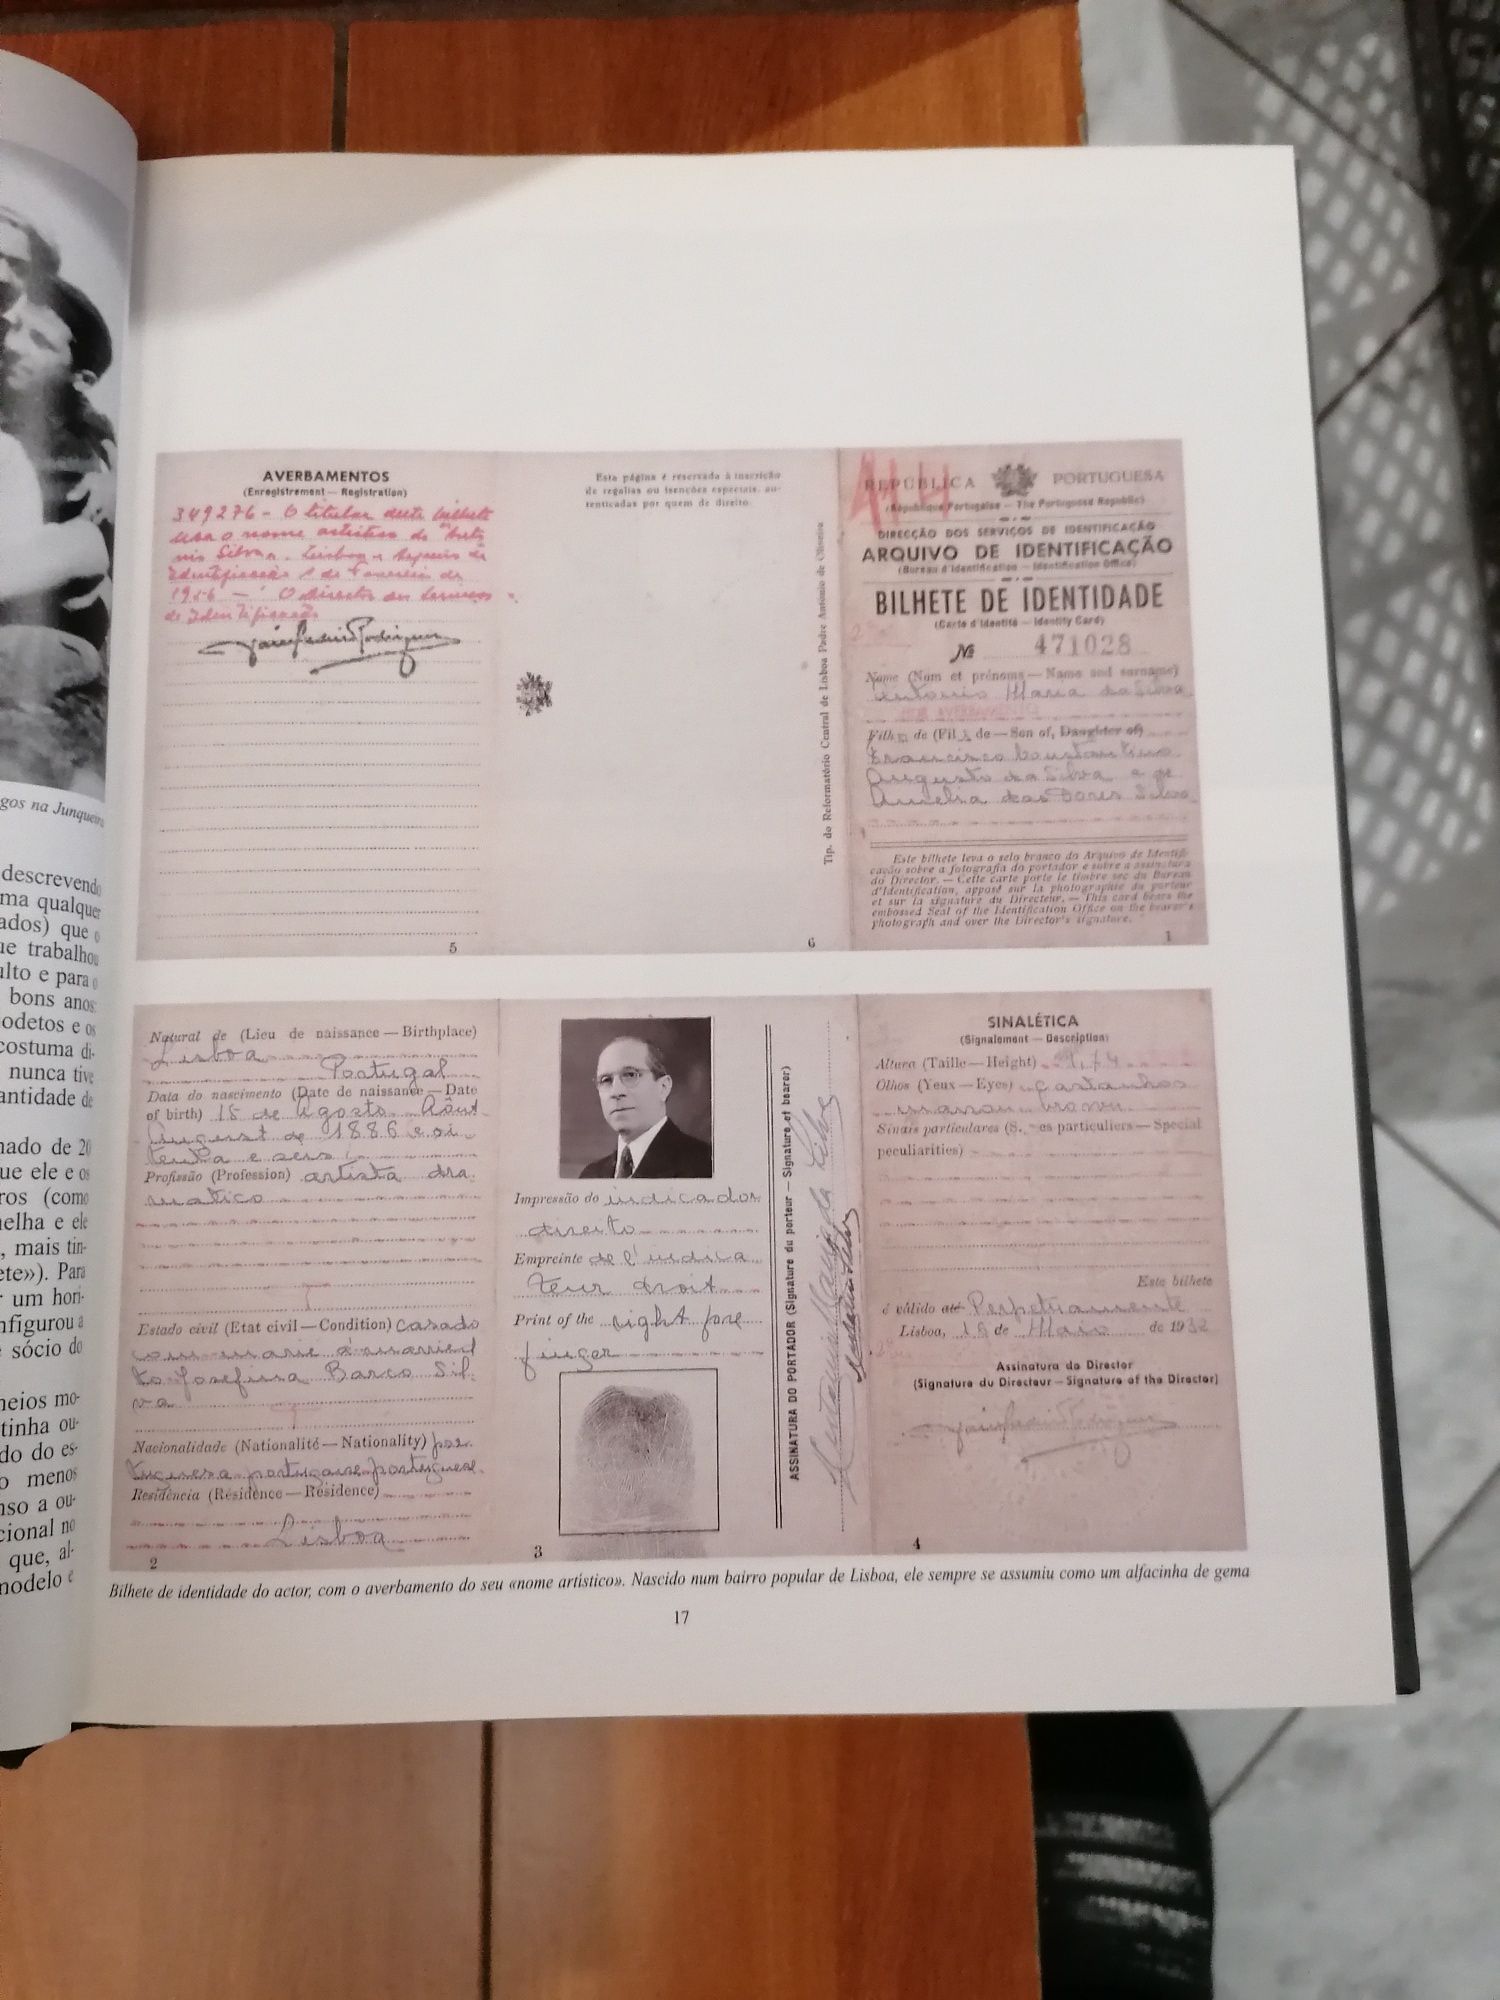 gos na Junqueira
descrevendo
ma qualquer
ados) que o
ue trabalhou
ulto e para o
bons anos:
odetos e os
costuma di-
nunca tive
antidade de
mado de 20
que ele e os
ros (como
nelha e ele
, mais tin-
ete»). Para
r um hori-
nfigurou a
sócio do
neios mo-
tinha ou-
do do es-
o menos
nso a ou-
cional no
que, al-
modelo e
AVERBAMENTOS
(Enregistrement — Registration)
349276 - O titular deste bilhete
usa o nome artistico de "Antó
nio Silva". Lisboa e Arquivo de
Identificação 1 de Fevereiro de
1956 — O Director dos Serviços
de Identificação
5
Esta página é reservada à inscrição
de regalias ou isenções especiais, au-
tenticadas por quem de direito.
6
Tip. do Reformatório Central de Lisboa Padre António de Oliveira
A14
REPÚBLICA PORTUGUESA
(République Portugaise — The Portuguese Republic)
DIRECÇÃO DOS SERVIÇOS DE IDENTIFICAÇÃO
ARQUIVO DE IDENTIFICAÇÃO
(Bureau d'Identification — Identification Office)
BILHETE DE IDENTIDADE
(Carte d'Identité — Identity Card)
№ 471028
Nome (Nom et prénoms — Name and surname)
Antonio Maria da Silva
AVERBAMENTO
Filho de (Fils de — Son of, Daughter of)
Francisco Constantino
Augusto da Silva e de
Amelia das Dores Silva
Este bilhete leva o selo branco do Arquivo de Identifi-
cação sobre a fotografia do portador e sobre a assinatura
do Director. — Cette carte porte le timbre sec du Bureau
d'Identification, apposé sur la photographie du porteur
et sur la signature du Directeur. — This card bears the
embossed Seal of the Identification Office on the bearer's
photograph and over the Director's signature.
1
Natural de (Lieu de naissance — Birthplace)
Lisboa
Portugal
Data do nascimento (Date de naissance — Date
of birth) 15 de Agosto Août
August de 1886 e oi-
tenta e seis
Profissão (Profession) artista dra
matico
Estado civil (Etat civil — Condition) casado
com marié à married
to Josefina Barco Sil-
va
Nacionalidade (Nationalité — Nationality) por-
tuguesa portugaise portuguese
Residência (Résidence — Résidence)
Lisboa
2
Impressão do indicador
direito
Empreinte de l'indica
teur droit
Print of the right fore
finger
3
ASSINATURA DO PORTADOR (Signature du porteur — Signature of bearer)
Antonio Maria da Silva
Antonio Silva
SINALÉTICA
(Signalement — Description)
Altura (Taille — Height) 1,74
Olhos (Yeux — Eyes) Castanhos
marron brown
Sinais particulares (Signes particuliers — Special
peculiarities)
Este bilhete
é válido até Perpetuamente
Lisboa, 18 de Maio de 1932
Assinatura do Director
(Signature du Directeur — Signature of the Director)
4
Bilhete de identidade do actor, com o averbamento do seu «nome artístico». Nascido num bairro popular de Lisboa, ele sempre se assumiu como um alfacinha de gema
17